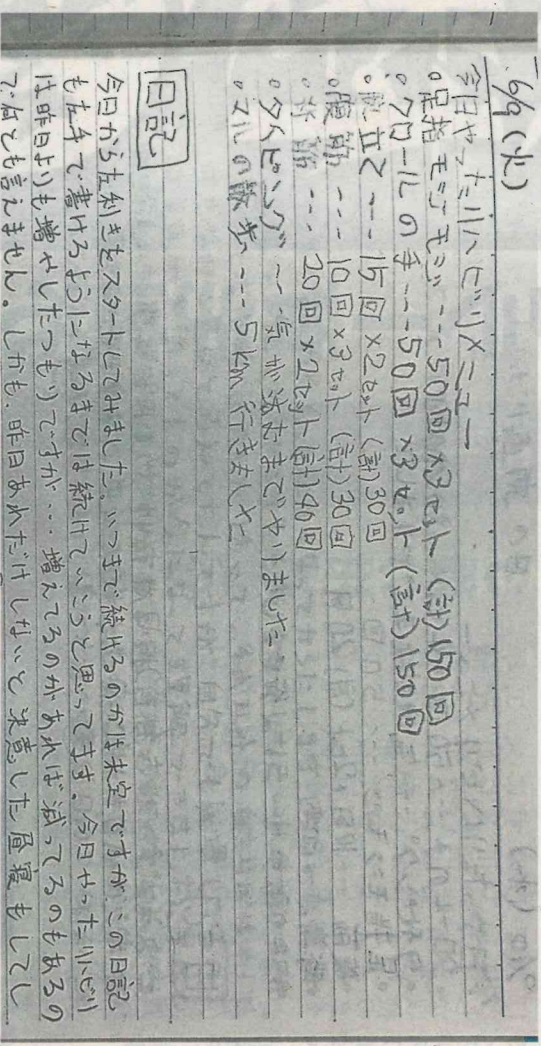 6/9(火)
今日やったリハビリメニュー
○足指モジモジ---50回×3セット (計)150回
○クロールの手---50回×3セット(計)150回
○腕立て---15回×2セット(計)30回
○腹筋---10回×3セット(計)30回
○背筋---20回×2セット(計)40回
○タイピング〜気が済むまでやりました
○マルの散歩---5km行きました
日記
今日から左利きをスタートしてみました。いつまで続けるのかは未定ですが、この日記
も左手で書けるようになるまでは続けていこうと思ってます。今日やったリハビリ
は昨日よりも増やしたつもりですが…増えてるのがあれば減ってるのもあるの
で何とも言えません。しかも、昨日あれだけしないと決意した昼寝もしてし